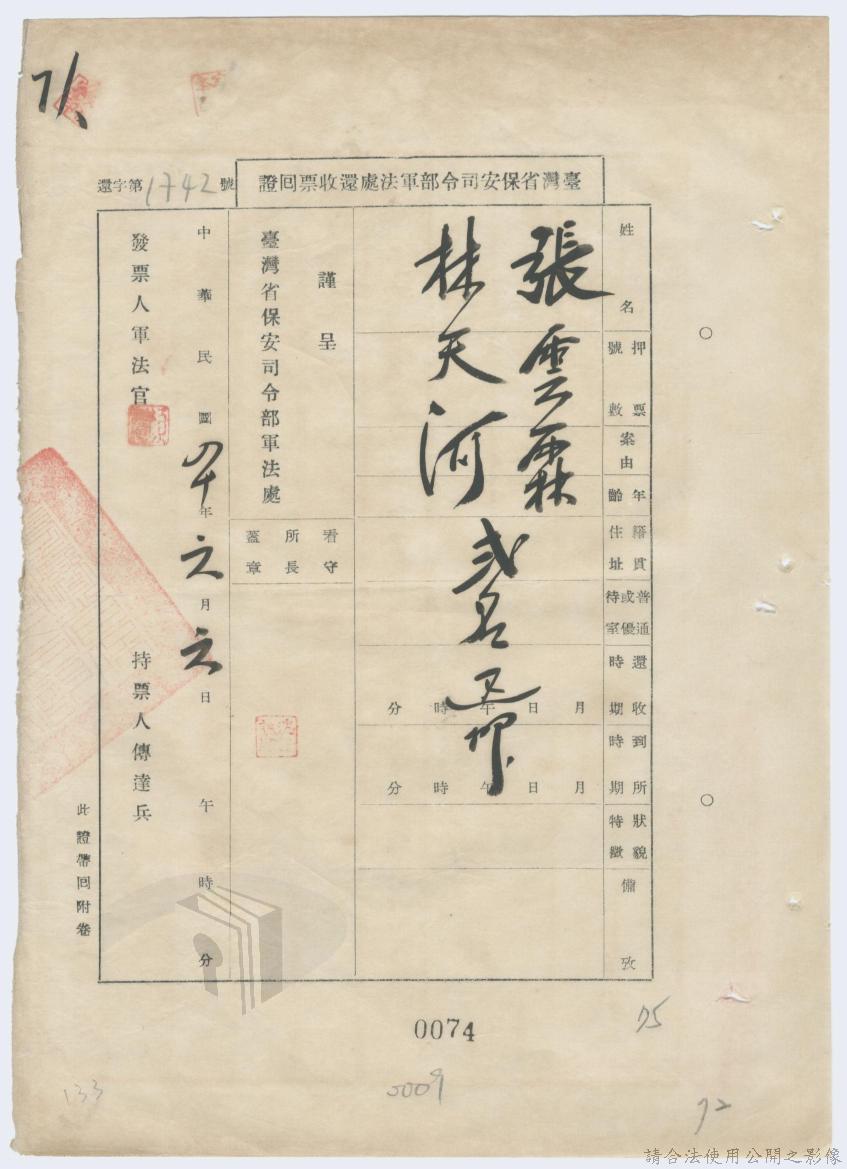 還字第1742號
臺灣省保安司令部軍法處還收票回證
姓名
押票號數
案由
年齡
籍貫住址
普通或優待室
還收時期
到所時期
狀貌特徵
備攷
張雲霖
林天河
弍名
還押
月日午時分
月日午時分
謹呈
臺灣省保安司令部軍法處
看守所長蓋章
中華民國四十年六月六日午時分
發票人軍法官
持票人傳達兵
此證帶回附卷
0074
75
133
0009
72
請合法使用公開之影像